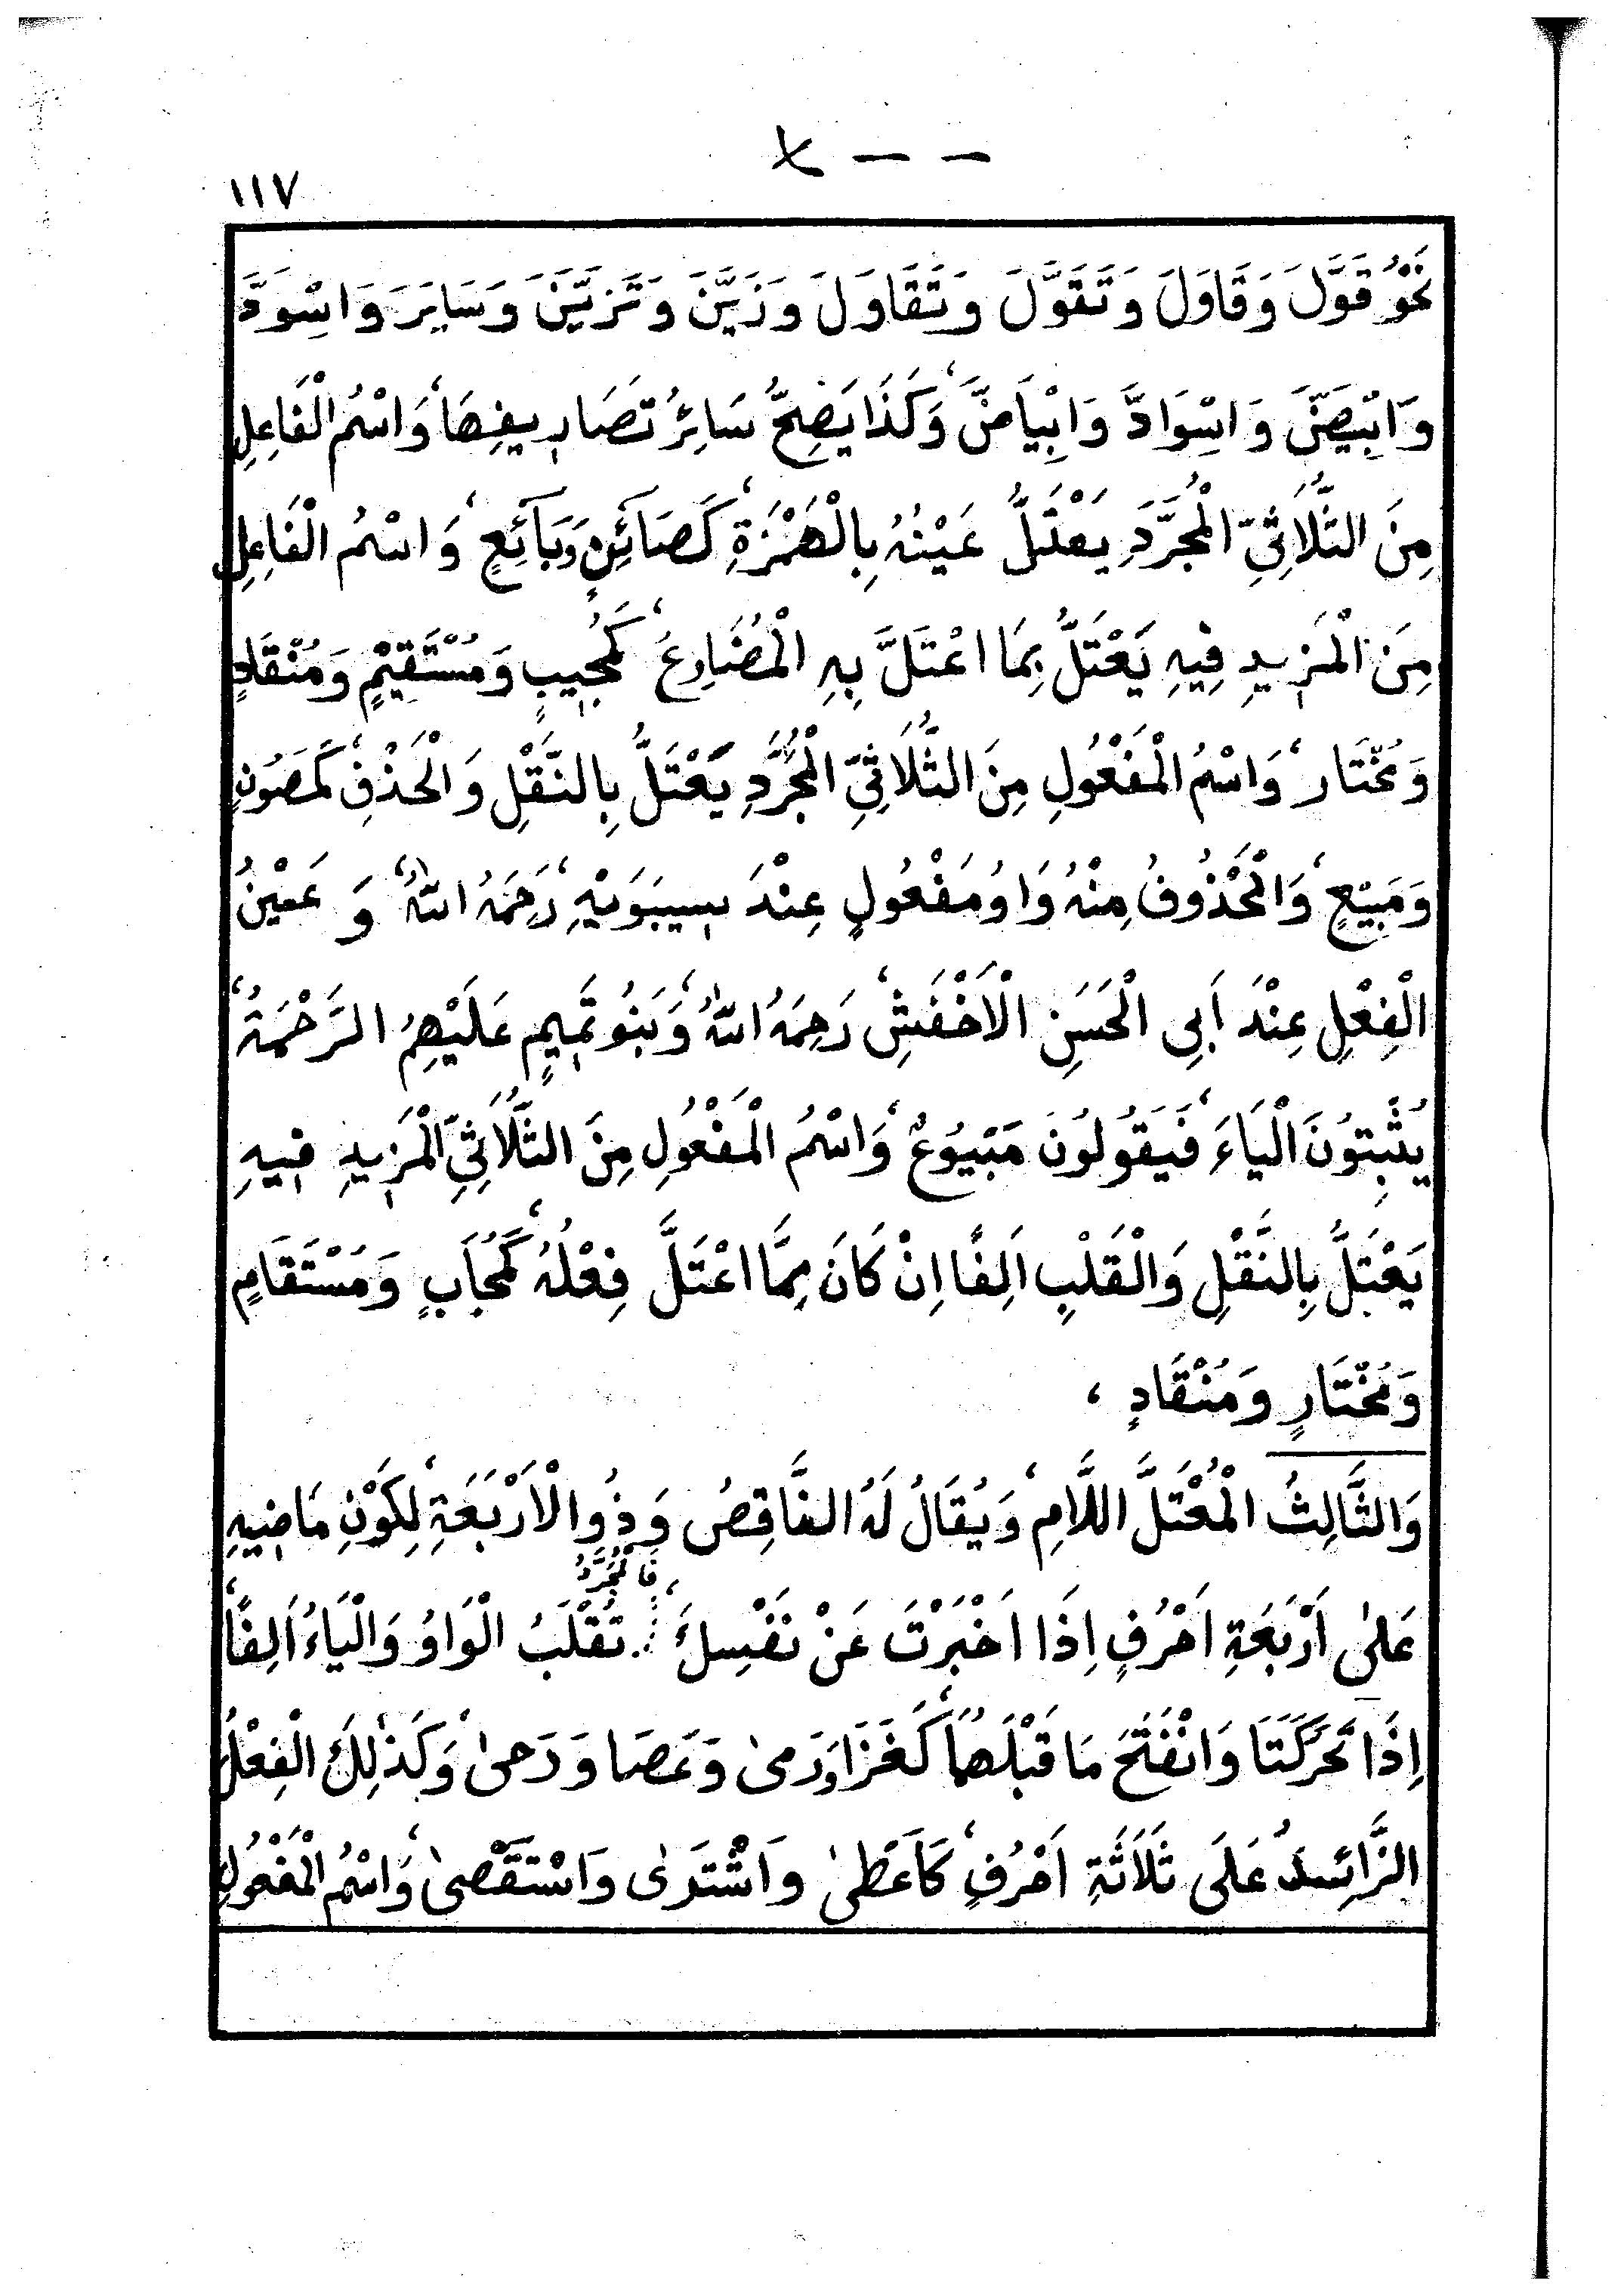 ١١٧
نَحْوُ قَوَّلَ وَقَاوَلَ وَتَقَوَّلَ وَتَقَاوَلَ وَزَيَّنَ وَتَزَيَّنَ وَسَايَرَ وَاسْوَدَّ
وَابْيَضَّ وَاسْوَادَّ وَابْيَاضَّ، وَكَذَا يَصِحُّ سَائِرُ تَصَارِيفِهَا، وَاسْمُ الْفَاعِلِ
مِنَ الثُّلَاثِيِّ الْمُجَرَّدِ يَعْتَلُّ عَيْنُهُ بِالْهَمْزَةِ، كَصَائِنٍ وَبَائِعٍ، وَاسْمُ الْفَاعِلِ
مِنَ الْمَزِيدِ فِيهِ يَعْتَلُّ بِمَا اعْتَلَّ بِهِ الْمُضَارِعَ، كَمُجِيبٍ وَمُسْتَقِيمٍ وَمُنْقَادٍ
وَمُخْتَارٍ، وَاسْمُ الْمَفْعُولِ مِنَ الثُّلَاثِيِّ الْمُجَرَّدِ يَعْتَلُّ بِالنَّقْلِ وَالْحَذْفِ، كَمَصُونٍ
وَمَبِيعٍ، وَالْمَحْذُوفُ مِنْهُ وَاوُ مَفْعُولٍ عِنْدَ سِيبَوَيْهِ، رَحِمَهُ اللّٰهُ، وَ عَيْنُ
الْفِعْلِ عِنْدَ اَبِى الْحَسَنِ الْاَخْفَشِ، رَحِمَهُ اللّٰهُ، وَبَنُو تَمِيمٍ عَلَيْهِمُ الرَّحْمَةُ،
يُثْبِتُونَ الْيَاءَ، فَيَقُولُونَ مَبْيُوعٌ، وَاسْمُ الْمَفْعُولِ مِنَ الثُّلَاثِيِّ الْمَزِيدِ فِيهِ
يَعْتَلُّ بِالنَّقْلِ وَالْقَلْبِ اَلِفًا اِنْ كَانَ مِمَّا اعْتَلَّ فِعْلُهُ، كَمُجَابٍ وَمُسْتَقَامٍ
وَمُخْتَارٍ وَمُنْقَادٍ ،
وَالثَّالِثُ الْمُعْتَلُّ اللَّامِ، وَيُقَالُ لَهُ النَّاقِصُ وَذُو الْاَرْبَعَةِ، لِكَوْنِ مَاضِيهِ
عَلىٰ اَرْبَعَةِ اَحْرُفٍ اِذَا اَخْبَرْتَ عَنْ نَفْسِكَ، فَالْمُجَرَّدُ تُقْلَبُ الْوَاوُ وَالْيَاءُ اَلِفًا،
اِذَا تَحَرَّكَتَا وَانْفَتَحَ مَا قَبْلَهُمَا، كَغَزَا وَرَمىٰ وَعَصَا وَرَحىٰ، وَكَذٰلِكَ الْفِعْلُ
الزَّائِدُ عَلَى ثَلَاثَةِ اَحْرُفٍ، كَاَعْطىٰ وَاشْتَرىٰ وَاسْتَقْصىٰ، وَاسْمُ الْمَفْعُولِ